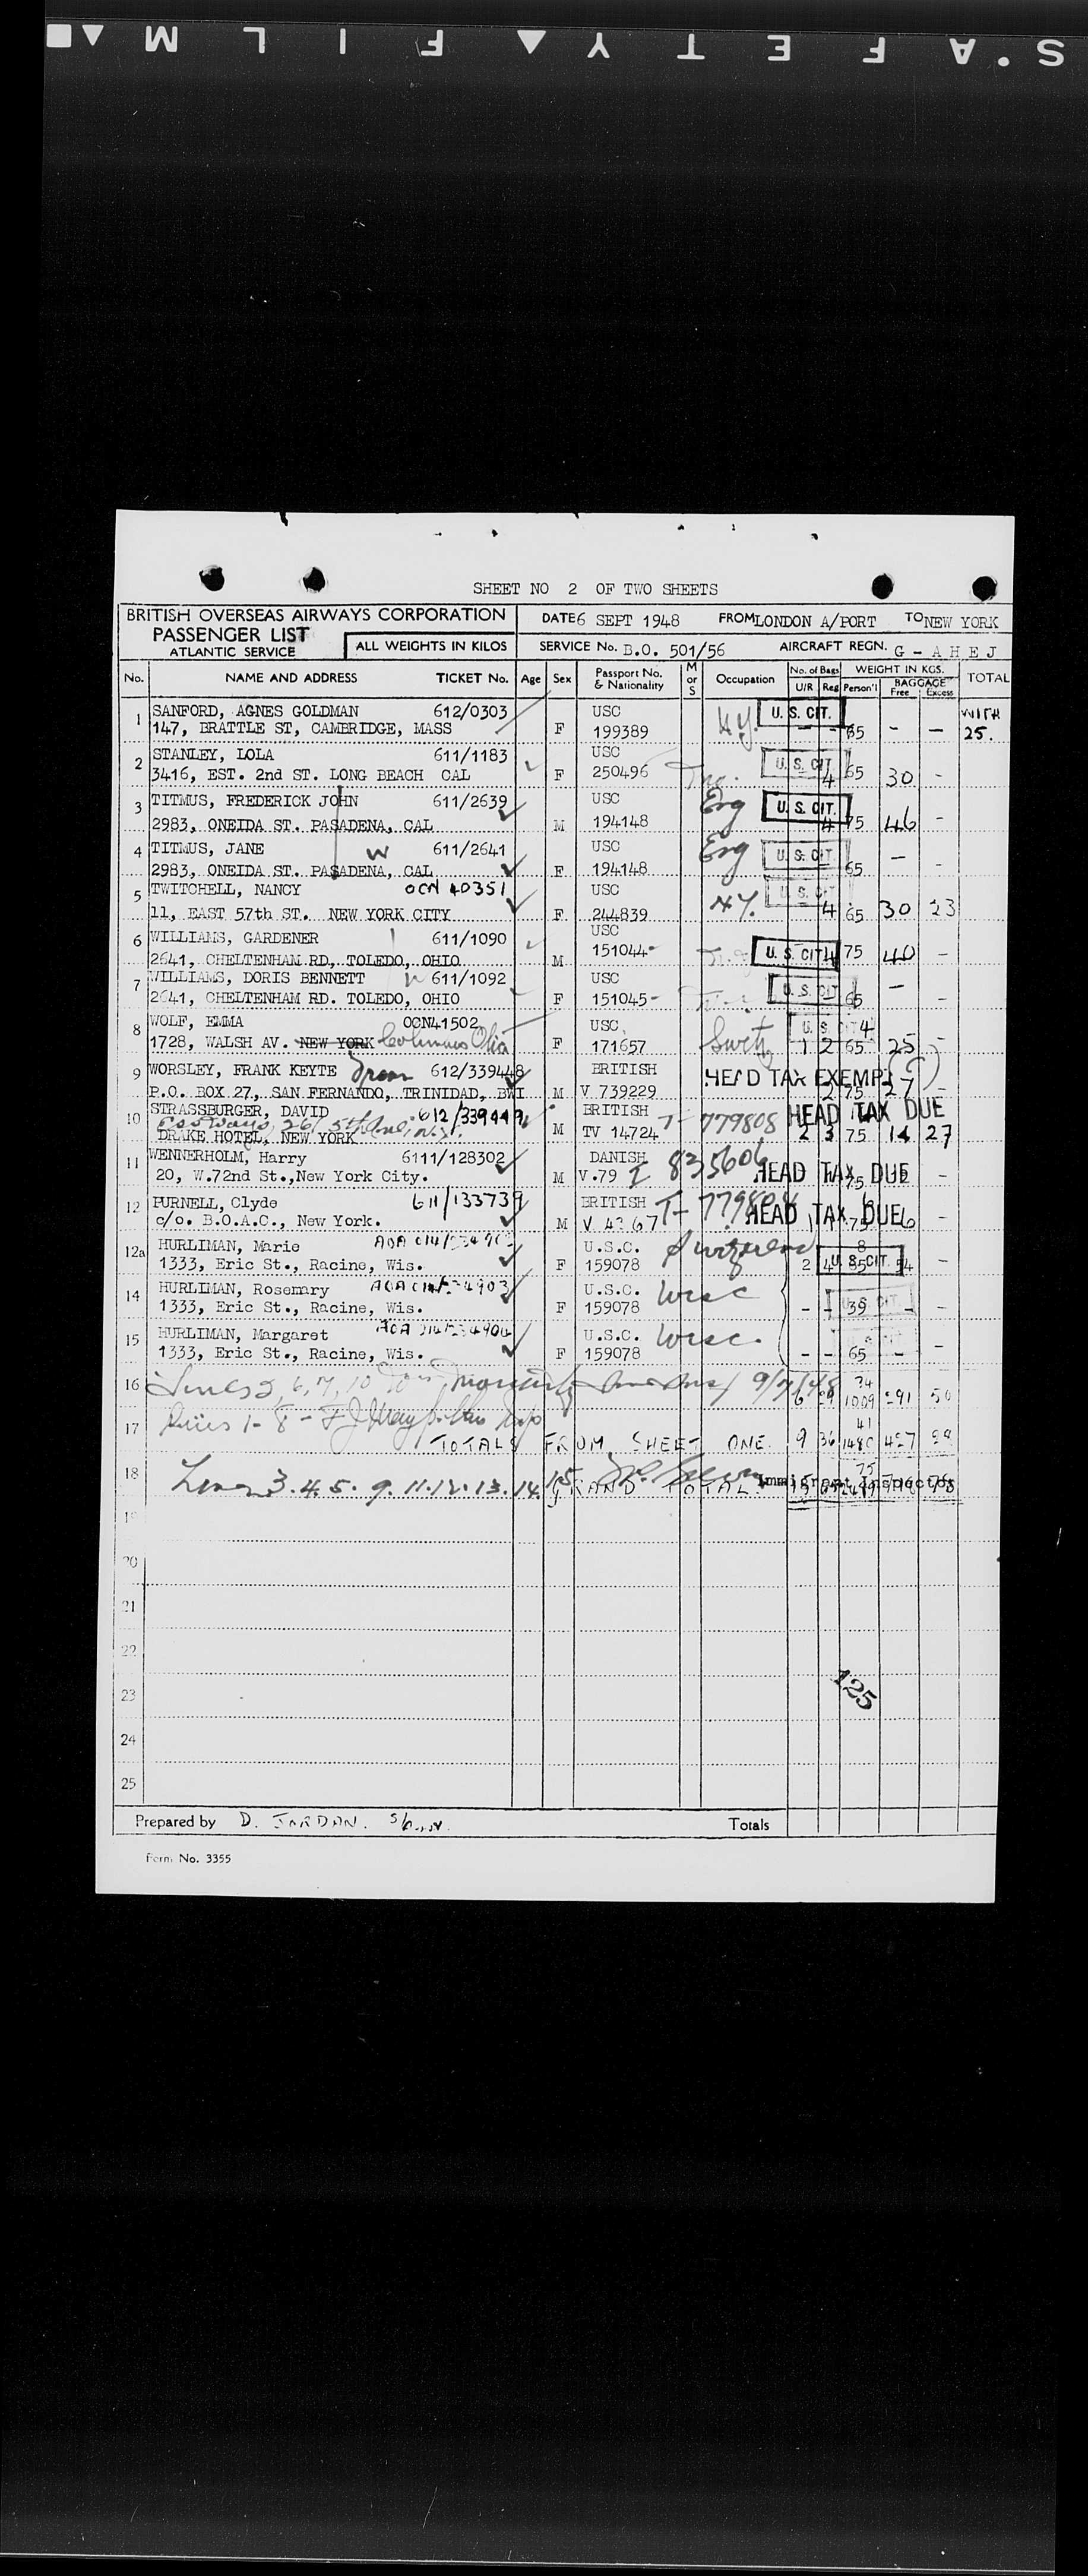 S.A F E T Y ▲ F I L M ▲ ■
SHEET NO 2 OF TWO SHEETS
BRITISH OVERSEAS AIRWAYS CORPORATION DATE 6 SEPT 1948 FROM LONDON A/PORT TO NEW YORK
PASSENGER LIST
ATLANTIC SERVICE ALL WEIGHTS IN KILOS SERVICE No. B.O. 501/56 AIRCRAFT REGN. G - A H E J
No. NAME AND ADDRESS TICKET No. Age Sex Passport No. & Nationality M or S Occupation No. of Bags U/R Reg WEIGHT IN KGS. Person'l BAGGAGE Free Excess TOTAL
1 SANFORD, AGNES GOLDMAN 612/0303 USC U. S. CIT. WITH
147, BRATTLE ST, CAMBRIDGE, MASS F 199389 N.Y. - - 65 - - 25.
2 STANLEY, LOLA 611/1183 USC U. S. CIT
3416, EST. 2nd ST. LONG BEACH CAL F 250496 4 65 30 -
3 TITMUS, FREDERICK JOHN 611/2639 USC Eng U. S. CIT.
2983, ONEIDA ST. PASADENA, CAL M 194148 4 75 46 -
4 TITMUS, JANE W 611/2641 USC Eng U. S. CIT
2983, ONEIDA ST. PASADENA, CAL F 194148 65 - -
5 TWITCHELL, NANCY OCN 40351 USC U. S. CIT
11, EAST 57th ST. NEW YORK CITY F 244839 N.Y. 4 65 30 23
6 WILLIAMS, GARDENER 611/1090 USC
2641, CHELTENHAM RD, TOLEDO, OHIO M 151044 U. S. CIT 4 75 40 -
7 WILLIAMS, DORIS BENNETT W 611/1092 USC U. S. CIT
2641, CHELTENHAM RD. TOLEDO, OHIO F 151045 65 - -
8 WOLF, EMMA OCN41502 USC U. S. CIT 4
1728, WALSH AV. NEW YORK Columbus Ohio F 171657 Switz 1 2 65 25 -
9 WORSLEY, FRANK KEYTE 612/339448 BRITISH HEAD TAX EXEMPT
P.O. BOX 27, SAN FERNANDO, TRINIDAD, BWI M V 739229 2 75 27 -
10 STRASSBURGER, DAVID 612/339449 BRITISH T- 779808 HEAD TAX DUE
DRAKE HOTEL, NEW YORK M TV 14724 2 3 75 14 27
11 WENNERHOLM, Harry 6111/128302 DANISH I 835606 HEAD TAX DUE
20, W.72nd St., New York City. M V.79 75
12 PURNELL, Clyde 611/133739 BRITISH HEAD TAX DUE
c/o. B.O.A.C., New York. M V 4367 75 -
12a HURLIMAN, Marie U.S.C.
1333, Eric St., Racine, Wis. F 159078 2 4 U. S. CIT. 54 -
14 HURLIMAN, Rosemary U.S.C. Wisc
1333, Eric St., Racine, Wis. F 159078 - - 39 - -
15 HURLIMAN, Margaret U.S.C. Wisc.
1333, Eric St., Racine, Wis. F 159078 - - 65 - -
16 Lines 2, 6, 7, 10 9/7/48 6 29 1009 291 50
17 Lines 1 - 8 -
TOTALS FROM SHEET ONE 9 36 1480 427
18 Lines 3. 4. 5. 9. 11. 12. 13. 14. 15 GRAND TOTAL Immigrant Inspector
19
20
21
22
23
24
25
125
Prepared by D. JORDAN. Totals
Form No. 3355